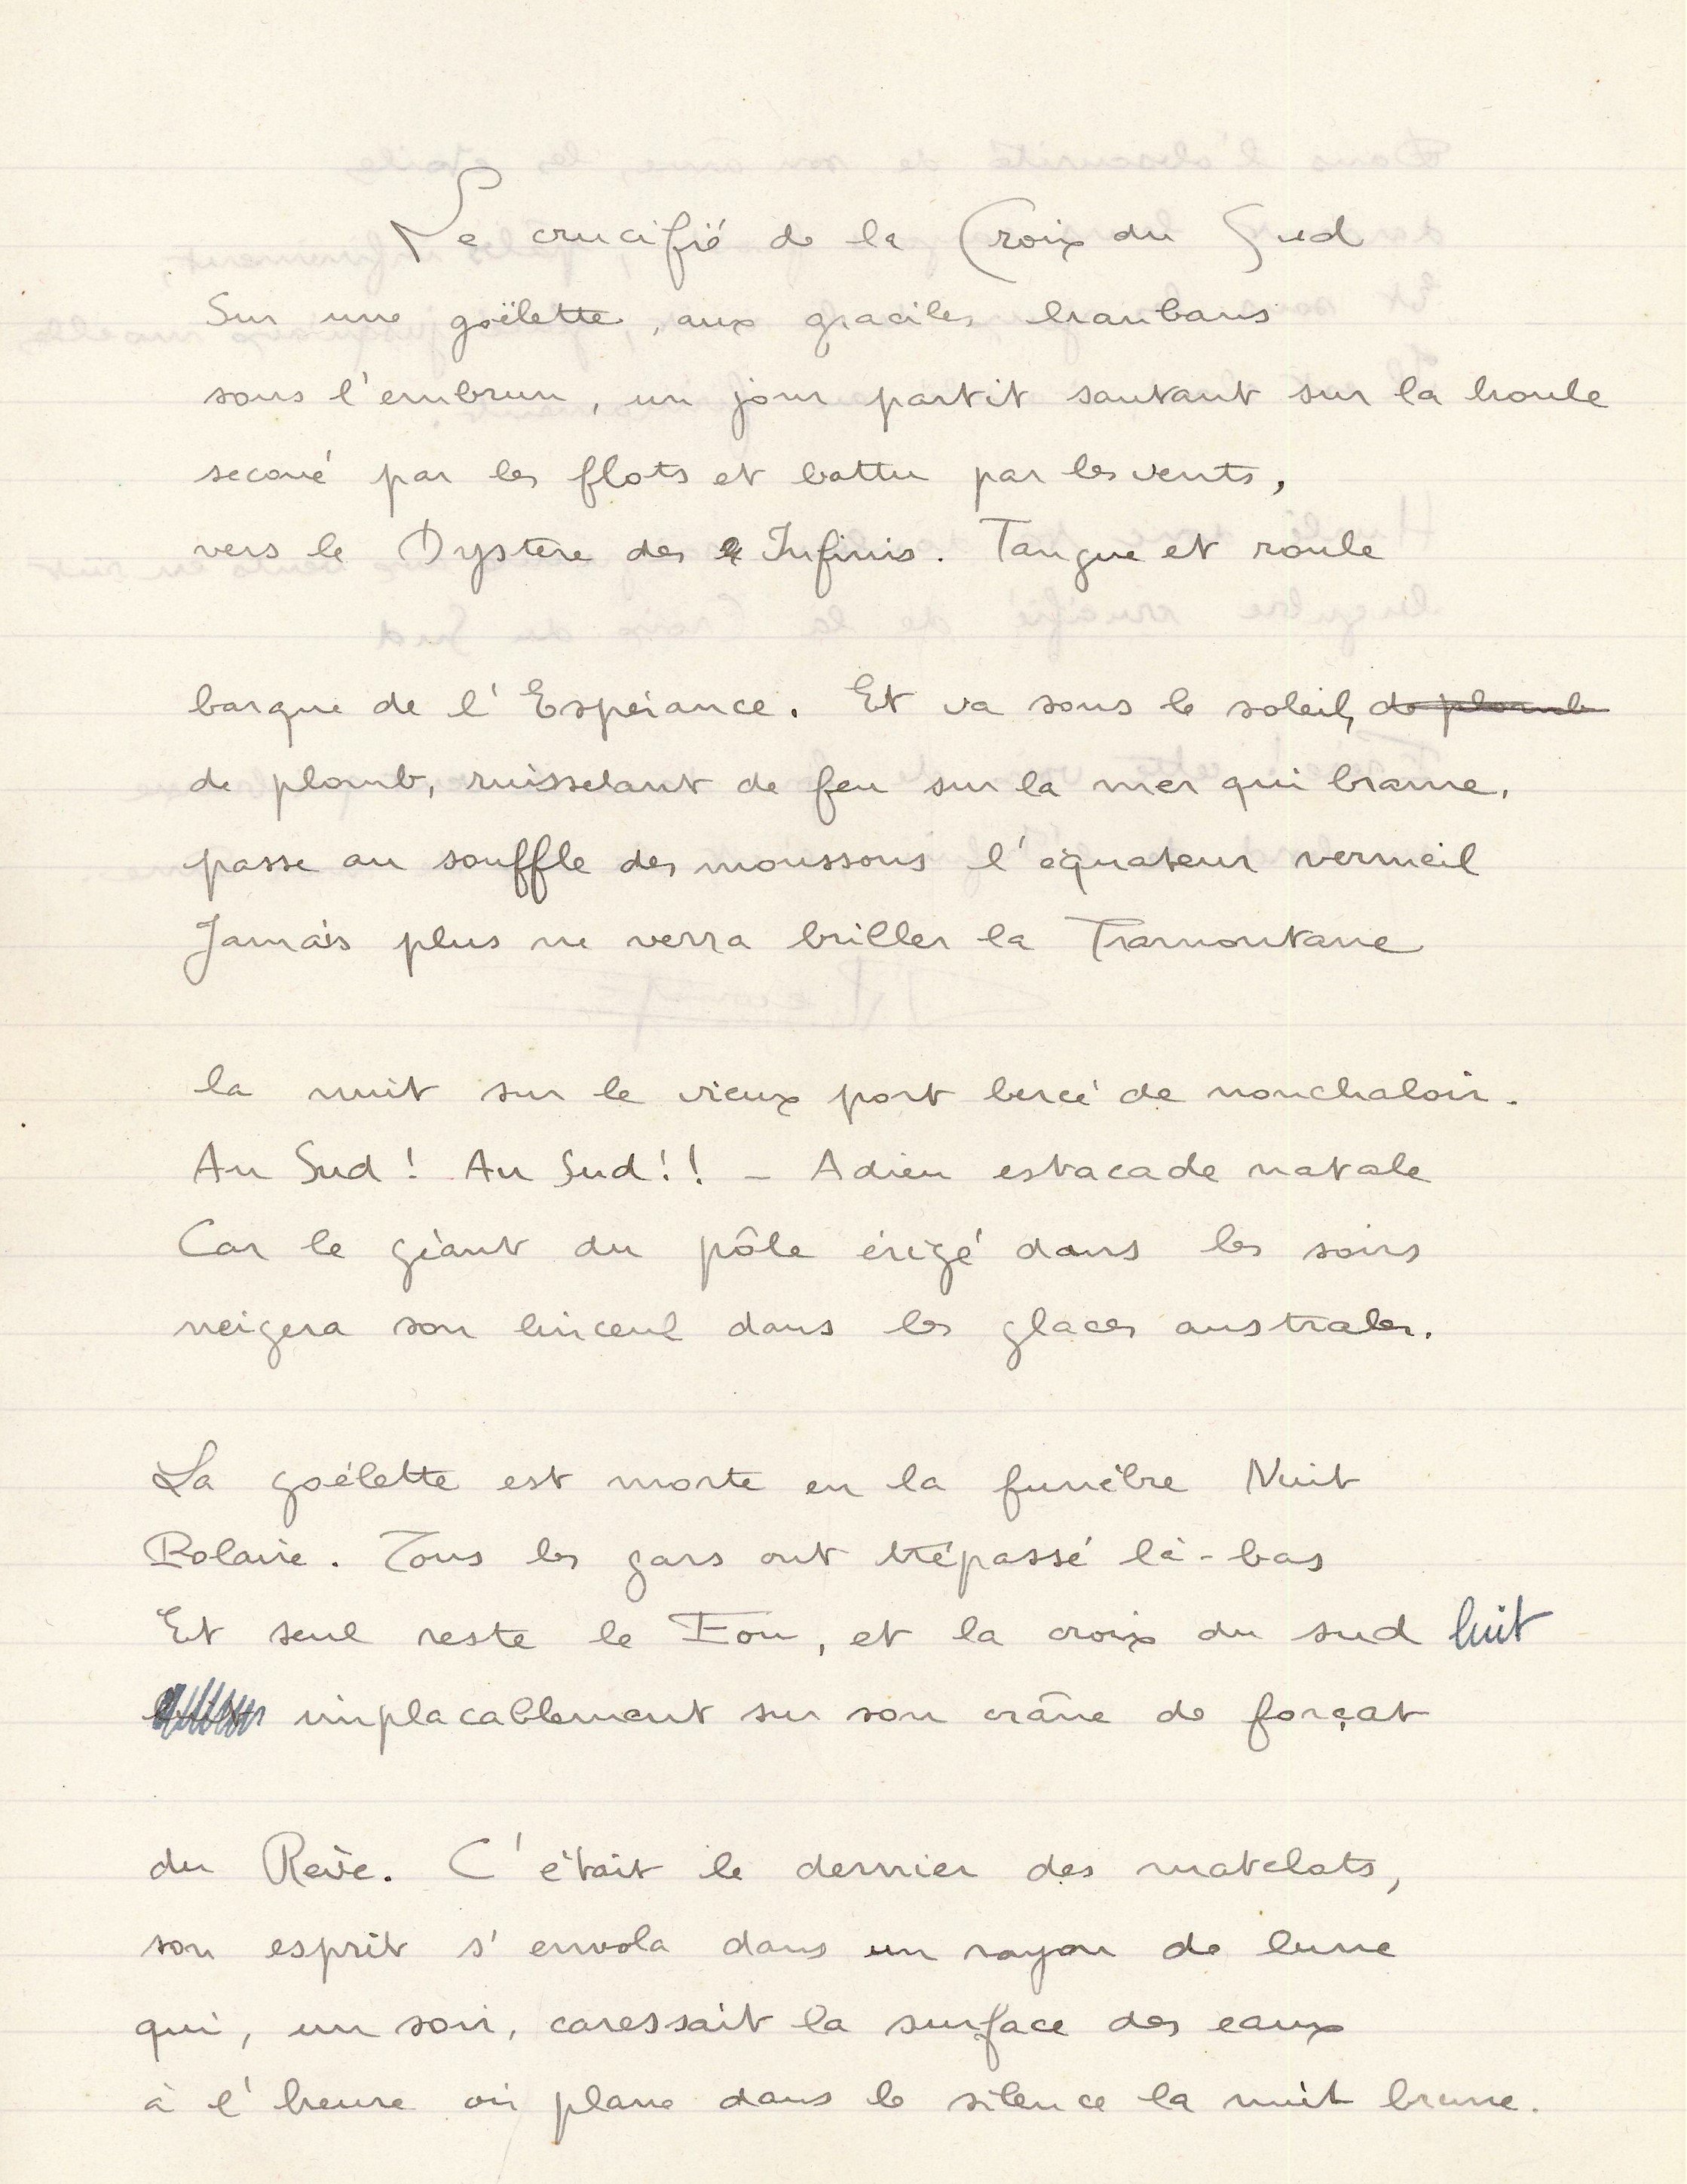 Le crucifié de la Croix du Sud
Sur une goëlette, aux graciles haubans
sous l'embrun, un jour partit sautant sur la houle
secoué par les flots et battu par les vents,
vers le Mystère des Infinis. Tangue et roule
barque de l'Espérance. Et va sous le soleil, de plomb
de plomb, ruisselant de feu sur la mer qui brame,
passe au souffle des moussons l'équateur vermeil
Jamais plus ne verra briller la Tramontane
la nuit sur le vieux port bercé de nonchaloir.
Au Sud! Au Sud!! - Adieu estacade natale
Car le géant du pôle érigé dans les soirs
neigera son linceul dans les glaces australes.
La goélette est morte en la funèbre Nuit
Polaire. Tous les gars ont trépassé là-bas
Et seul reste le Fou, et la croix du sud luit
implacablement sur son crâne de forçat
du Rêve. C'était le dernier des matelots,
son esprit s'envola dans un rayon de lune
qui, un soir, caressait la surface des eaux
à l'heure où plane dans le silence la nuit brune.